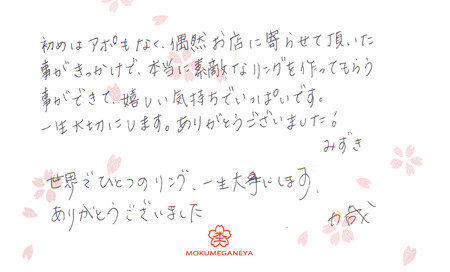 初めはアポもなく、偶然お店に寄らせて頂いた
事がきっかけで、本当に素敵なリングを作ってもらう
事ができて、嬉しい気持ちでいっぱいです。
一生大切にします。ありがとうございました！
みずき
世界でひとつのリング、一生大事にします、
ありがとうございました
MOKUMEGANEYA